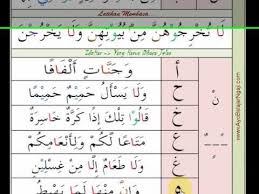 Latihan Membaca
لَا تُخْرِجُوهُنَّ مِنْ بُيُوتِهِنَّ وَلَا يَخْرُجْنَ
Idzhar -> Yang Harus Dibaca Jelas
أ وَجَنَّاتٍ أَلْفَافًا
نْ ح وَلَا يَسْأَلُ حَمِيمٌ حَمِيمًا
خ قَالُوا تِلْكَ إِذًا كَرَّةٌ خَاسِرَةٌ
ع مَتَاعًا لَكُمْ وَلِأَنْعَامِكُمْ
غ وَلَا طَعَامٌ إِلَّا مِنْ غِسْلِينٍ
ه وَإِنَّ مِنْهَا لَمَا يَهْبِطُ